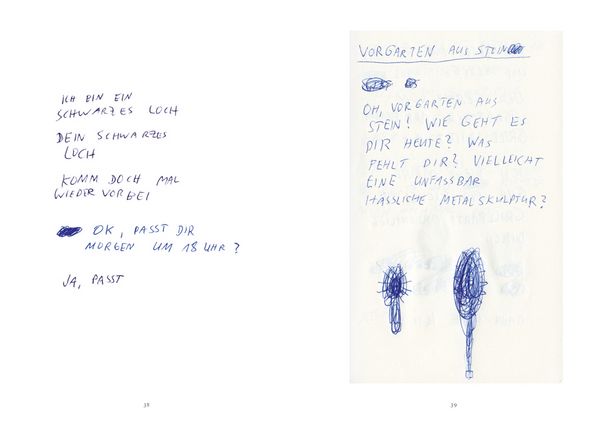 ICH BIN EIN
SCHWARZES LOCH
DEIN SCHWARZES
LOCH
KOMM DOCH MAL
WIEDER VORBEI
OK, PASST DIR
MORGEN UM 18 UHR?
JA, PASST
38
VORGARTEN AUS STEIN
OH, VORGARTEN AUS
STEIN! WIE GEHT ES
DIR HEUTE? WAS
FEHLT DIR? VIELLEICHT
EINE UNFASSBAR
HÄSSLICHE METALSKULPTUR?
39